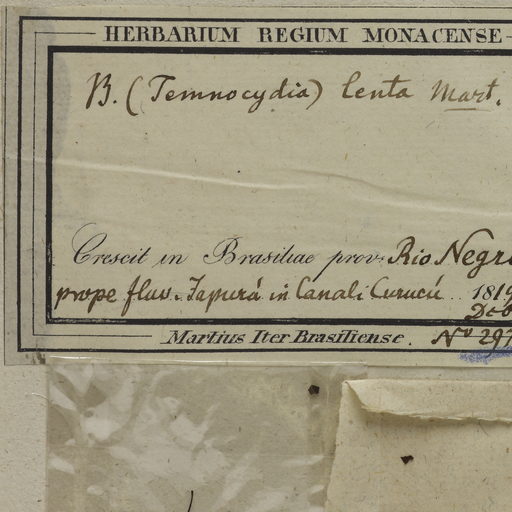 HERBARIUM REGIUM MONACENSE
B. (Temnocydia) lenta Mart.
Crescit in Brasiliae prov. Rio Negro
prope fluv. Japurá in Canali Curucú 1819
Dcb
Martius Iter Brasiliense. No 297